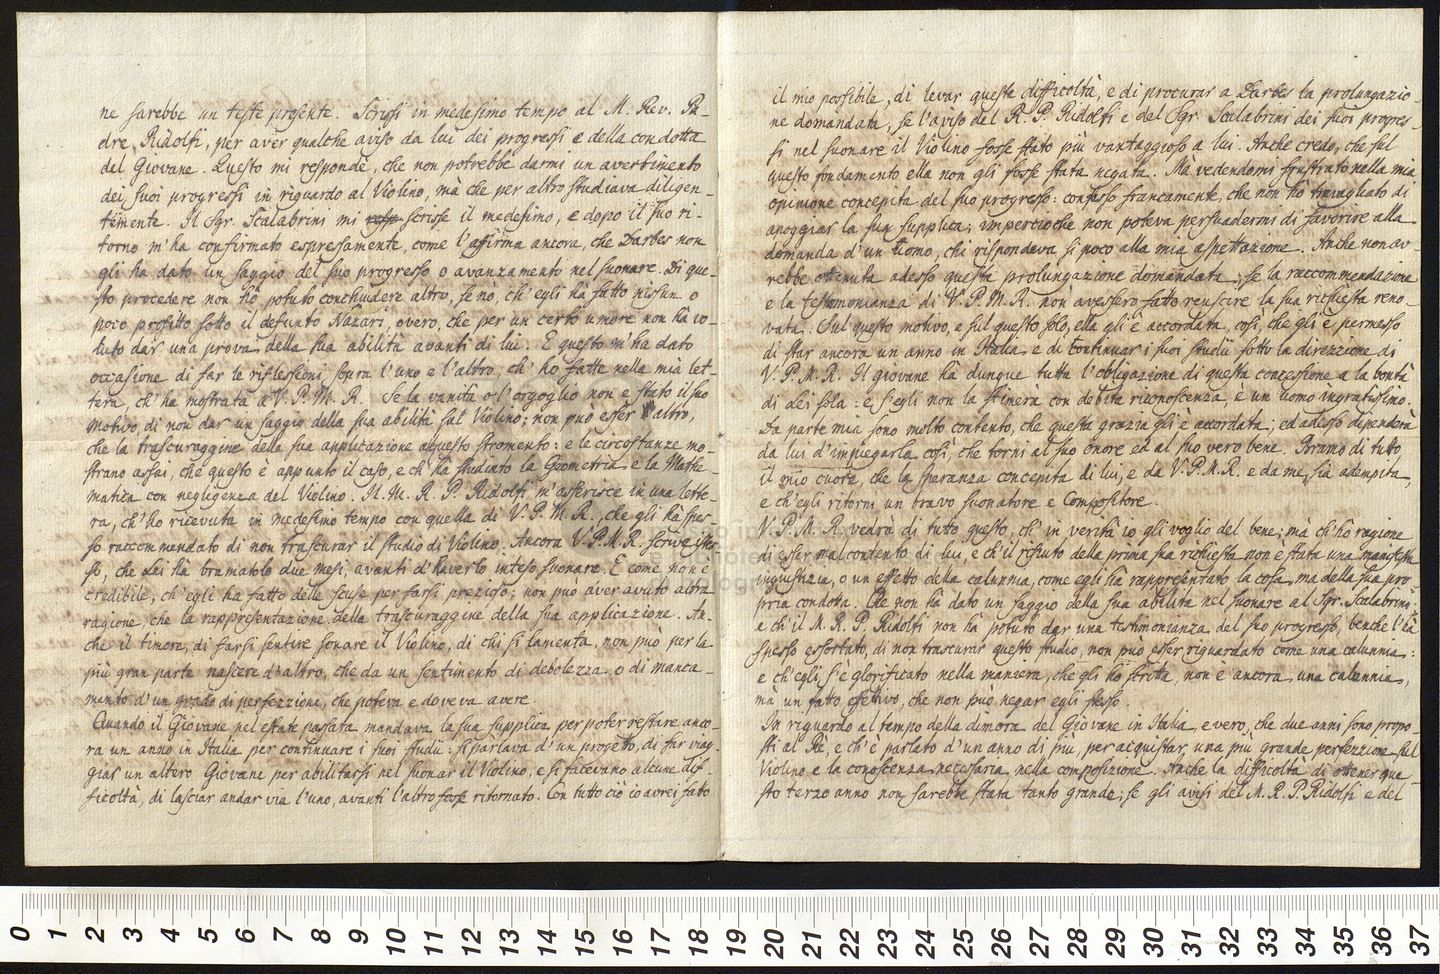 ne sarebbe un teste presente. Scrissi in medesimo tempo al M. Rev. Pa-
dre Ridolfi, per aver qualche aviso da lui dei progressi e della condotta
del Giovane. Questo mi responde, che non potrebbe darmi un avertimento
dei suoi progressi in riguardo al Violino, mà che per altro studiava diligen-
temente. Il Sgr. Scalabrini mi scrisse il medesimo, e dopo il suo ri-
torno m'ha confirmato espressamente, come l'affirma ancora, che Darbes non
gli ha dato un saggio del suo progresso o avanzamento nel suonare. Di que-
sto procedere non hò potuto conchiudere altro, se nò, ch'egli hà fatto nissun o
poco profitto sotto il defunto Nazari, overo, che per un certo umore non hà vo-
luto dar una prova della sua abilità avanti di lui. E questo m'ha dato
occasione di far le riflessioni sopra l'uno e l'altro, ch'ho fatte nella mia let-
tera, ch'ha mostrata à V. P. M. R. Se la vanità o l'orgoglio non è stato il suo
motivo, di non dar un saggio della sua abilità sul Violino; non può esser altro,
che la trascuraggine della sua applicazione aquesto stromento: e le circostanze mo-
strano assai, che questo è appunto il caso, e ch'ha studiato la Geometria e la Mathe-
matica con negligenza del Violino. Il M. R. P. Ridolfi m'asserisce in una lette-
ra, ch'ho ricevuta in medesimo tempo con quella di V. P. M. R., che gli hà spes-
so raccommandato di non trascurar il studio di Violino. Ancora V. P. M. R. scrive istes-
so, che Lei hà bramatolo due mesi, avanti d'haverlo inteso suonare. E come non è
credibile, ch'egli ha fatto delle scuse per farsi prezioso; non può aver avuto altra
ragione, che la rappresentazione della trascuraggine della sua applicazione. An-
che il timore, di farsi sentire sonare il Violino, di chi si lamenta, non può per la
più gran parte nascere d'altro, che da un sentimento di debolezza, o di manca-
mento d'un grado di perfezzione, che poteva e doveva avere.
Quando il Giovane nel estate passata mandava la sua supplica per poter restare anco-
ra un anno in Italia per continuare i suoi studii: si parlava d'un progetto, di far viag-
giar un altero Giovane per abilitarsi nel suonar il Violino, e si facevano alcune dif-
ficoltà, di lasciar andar via l'uno, avanti l'altro fosse ritornato. Con tutto ciò io avrei fato
il mio possibile, di levar questa difficoltà, e di procurar a Darbes la prolungazio-
ne domandata, se l'aviso del R. P. Ridolfi e del Sgr. Scalabrini dei suoi progres-
si nel suonare il Violino fosse stato più vantaggioso a lui. Anche credo, che sul
questo fondamento ella non gli fosse stata negata. Mà vedendomi frustrato nella mia
opinione concepita del suo progresso: confesso francamente, che non hò travagliato di
apoggiar la sua supplica; impercioche non poteva persuadermi di favorire alla
domanda d'un uomo, chi rispondeva si poco alla mia aspettazione. Anche non av-
rebbe ottenuta adesso questa prolungazione domandata, se la raccommendazione
e la testimonianza di V. P. M. R. non avessero fatto reuscire la sua richiesta reno-
vata. Sul questo motivo, e sul questo solo, ella gli è accordata, così, che gli è permesso
di star ancora un anno in Italia e di continuar i suoi studii sotto la direzzione di
V. P. M. R. Il giovane hà dunque tutta l'obligazione di questa concessione a la bontà
di Lei sola: e s'egli non la stimerà con debita riconoscenza, è un uomo ingratissimo.
Da parte mia sono molto contento, che questa grazia gli è accordata; ed adesso dipenderà
da lui d'impiegarla così, che torni al suo onore ed al suo vero bene. Bramo di tutto,
il mio cuore, che la speranza concepita di lui, e da V. P. M. R. e da me, sia adempita,
e ch'egli ritorni un bravo suonatore e Compositore.
V. P. M. R. vedrà di tuto questo, ch'in verità io gli voglio del bene; mà ch'hò ragione
di esser malcontento di lui, e ch'il refuto della prima sua richiesta non è stata una manifesta
ingiustizia, o un effetto della calunnia, come egli hà rappresentato la cosa, ma della sua pro-
pria condotta. Che non hà dato un saggio della sua abilità nel suonare al Sgr. Scalabrini:
e ch'il M. R. P. Ridolfi non hà potuto dar una testimonianza del suo progresso, benche l'hà
spesso essortato, di non trascurar questo studio, non può esser riguardato come una calunnia:
e ch'egli s'è glorificato nella maniera, che gli hò scritta, non è ancora una calunnia,
mà un fatto effettivo, che non può negar egli stesso.
In riguardo al tempo della dimora del Giovane in Italia è vero, che due anni sono propo-
sti al Rè, e ch'è parlato d'un anno di piu, per acquistar una più grande perfezzione sul
Violino e la conoscenza necessaria nella composizione. Anche la difficoltà di ottener que-
sto terzo anno non sarebbe stata tanto grande; se gli avisi del M. R. P. Ridolfi e del
0 1 2 3 4 5 6 7 8 9 10 11 12 13 14 15 16 17 18 19 20 21 22 23 24 25 26 27 28 29 30 31 32 33 34 35 36 37